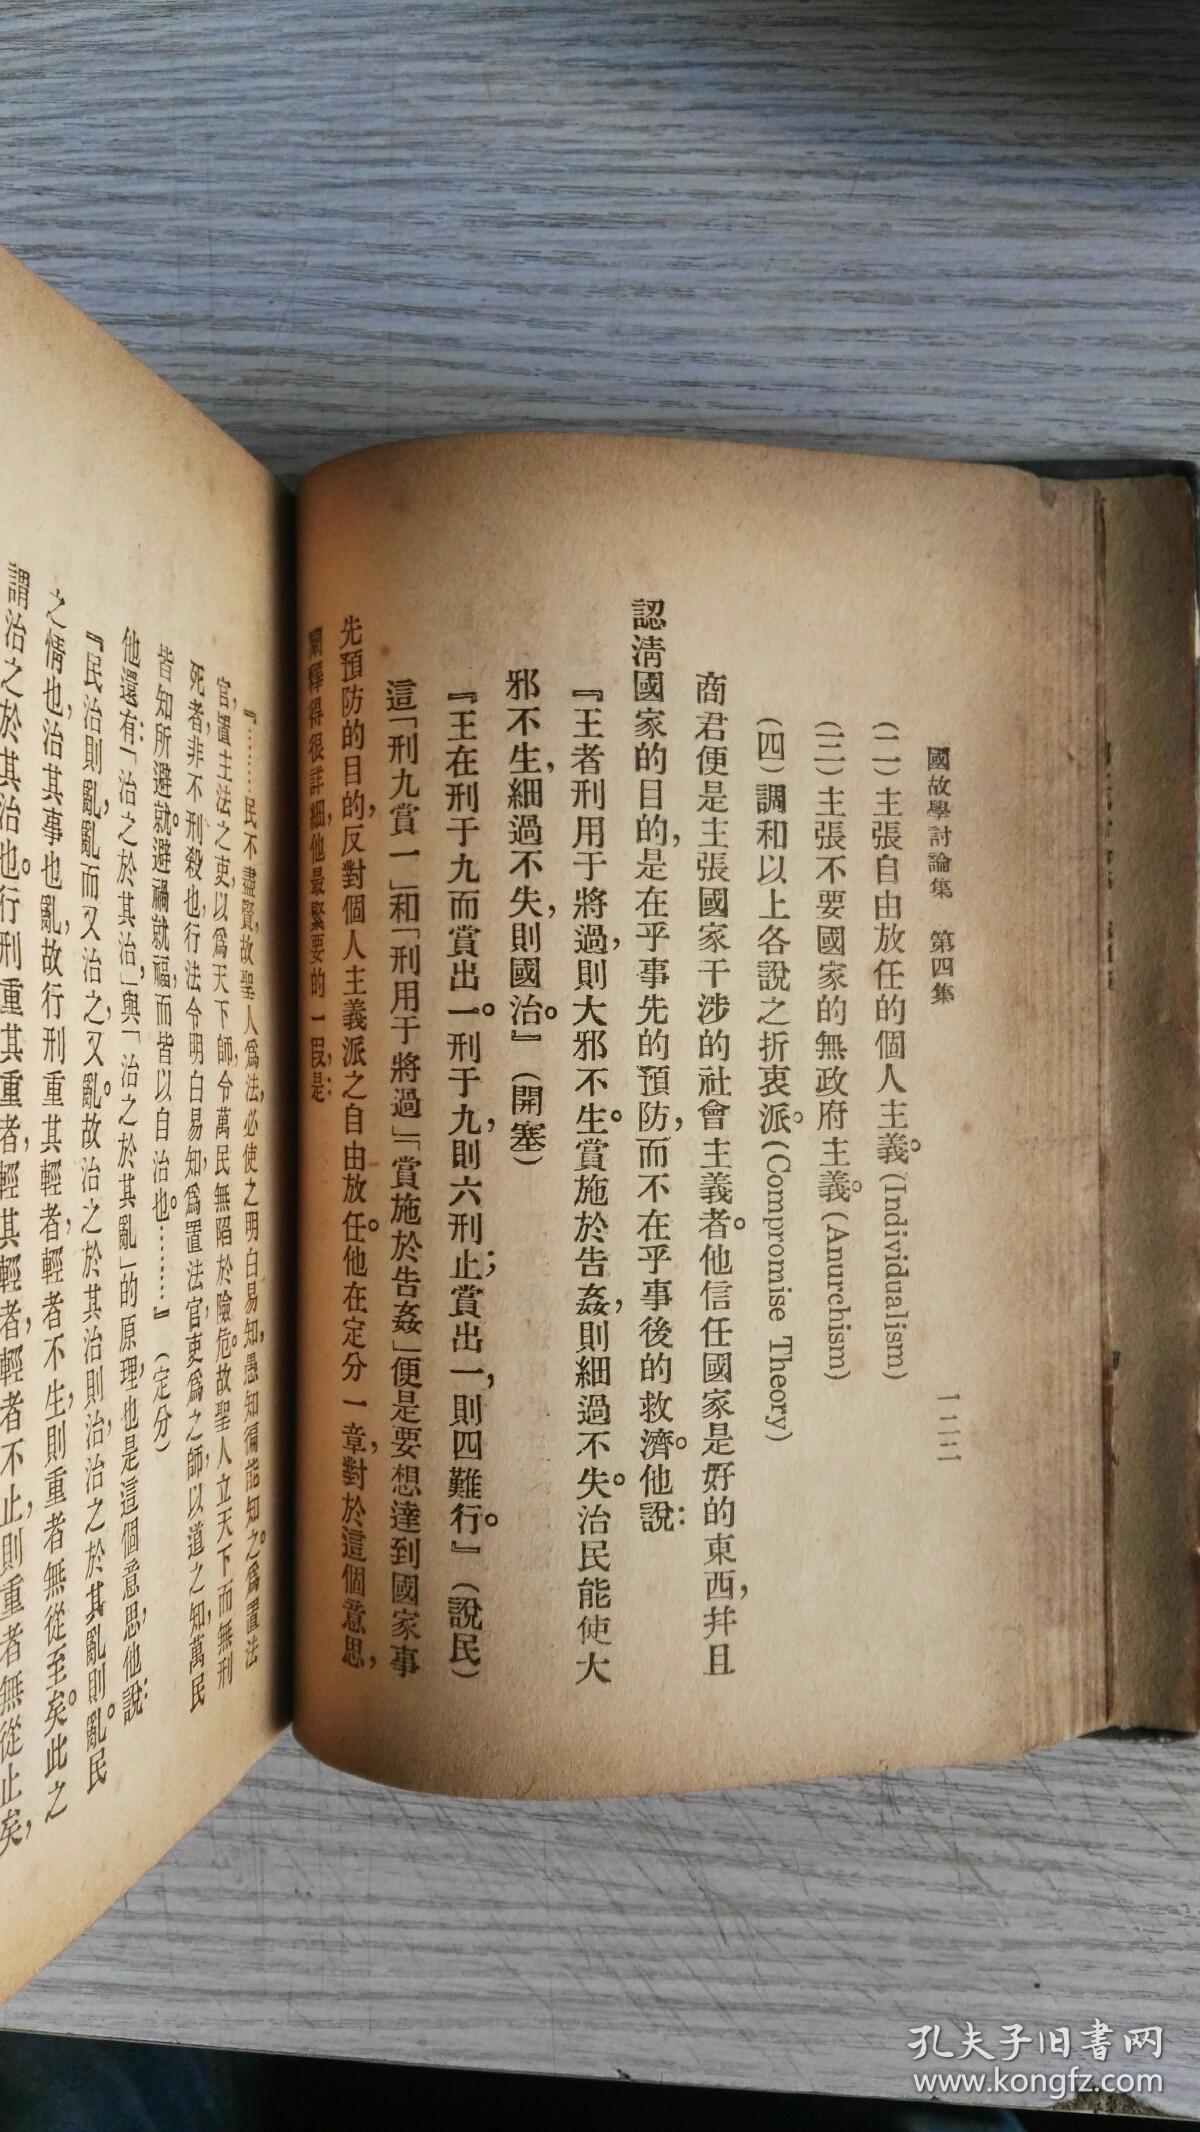 國故學討論集 第四集
一二二
(二)主張自由放任的個人主義。(Individualism)
(三)主張不要國家的無政府主義。(Anurchism)
(四)調和以上各說之折衷派。(Compromise Theory)
商君便是主張國家干涉的社會主義者。他信任國家是好的東西,幷且
認淸國家的目的,是在乎事先的預防,而不在乎事後的救濟。他說:
『王者刑用于將過,則大邪不生。賞施於告姦,則細過不失。治民能使大
邪不生,細過不失,則國治。』(開塞)
『王在刑于九而賞出一。刑于九,則六刑止;賞出一,則四難行。』(說民)
這「刑九賞一」和「刑用于將過」「賞施於告姦」便是要想達到國家事
先預防的目的,反對個人主義派之自由放任。他在定分一章,對於這個意思,
闡釋得很詳細,他最緊要的一段,是:
『………民不盡賢,故聖人爲法,必使之明白易知,愚知徧能知之。爲置法
官,置主法之吏,以爲天下師,令萬民無陷於險危。故聖人立天下而無刑
死者,非不刑殺也,行法令明白易知,爲置法官,吏爲之師,以道之知,萬民
皆知所避就。避禍就福,而皆以自治也。………』(定分)
他還有:「治之於其治」,與「治之於其亂」的原理,也是這個意思,他說:
『民治則亂,亂而又治之,又亂。故治之於其治則治,治之於其亂則亂。民
之情也治,其事也亂,故行刑重其輕者,輕者不生,則重者無從至矣。此之
謂治之於其治也。行刑重其重者,輕其輕者,輕者不止,則重者無從止矣,
孔夫子旧书网
www.kongfz.com